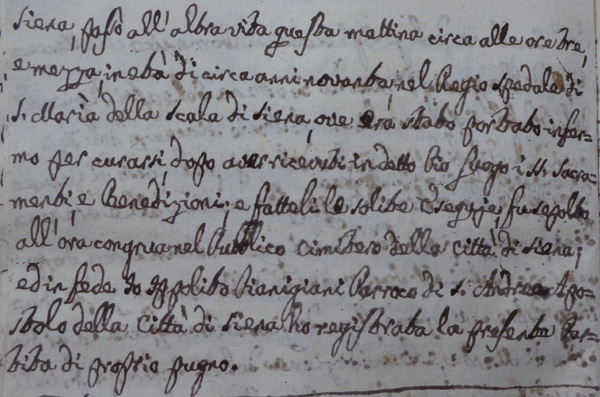 Siena, passò all'altra vita questa mattina circa alle ore tre,
e mezza, in età di circa anni novanta, nel Regio Spedale di
S. Maria della Scala di Siena, ove era stato portato infer=
mo per curarsi, dopo aver ricevuti in detto Pio Luogo i SS. Sacra=
menti, e Benedizioni, e fatteli le solite Esequie, fu sepolto
all'ora congrua nel Pubblico Cimitero della Città di Siena,
ed in fede Io Ippolito Pianigiani Parroco di S. Andrea Apo=
stolo della Città di Siena ho registrata la presente Par=
tita di proprio pugno.